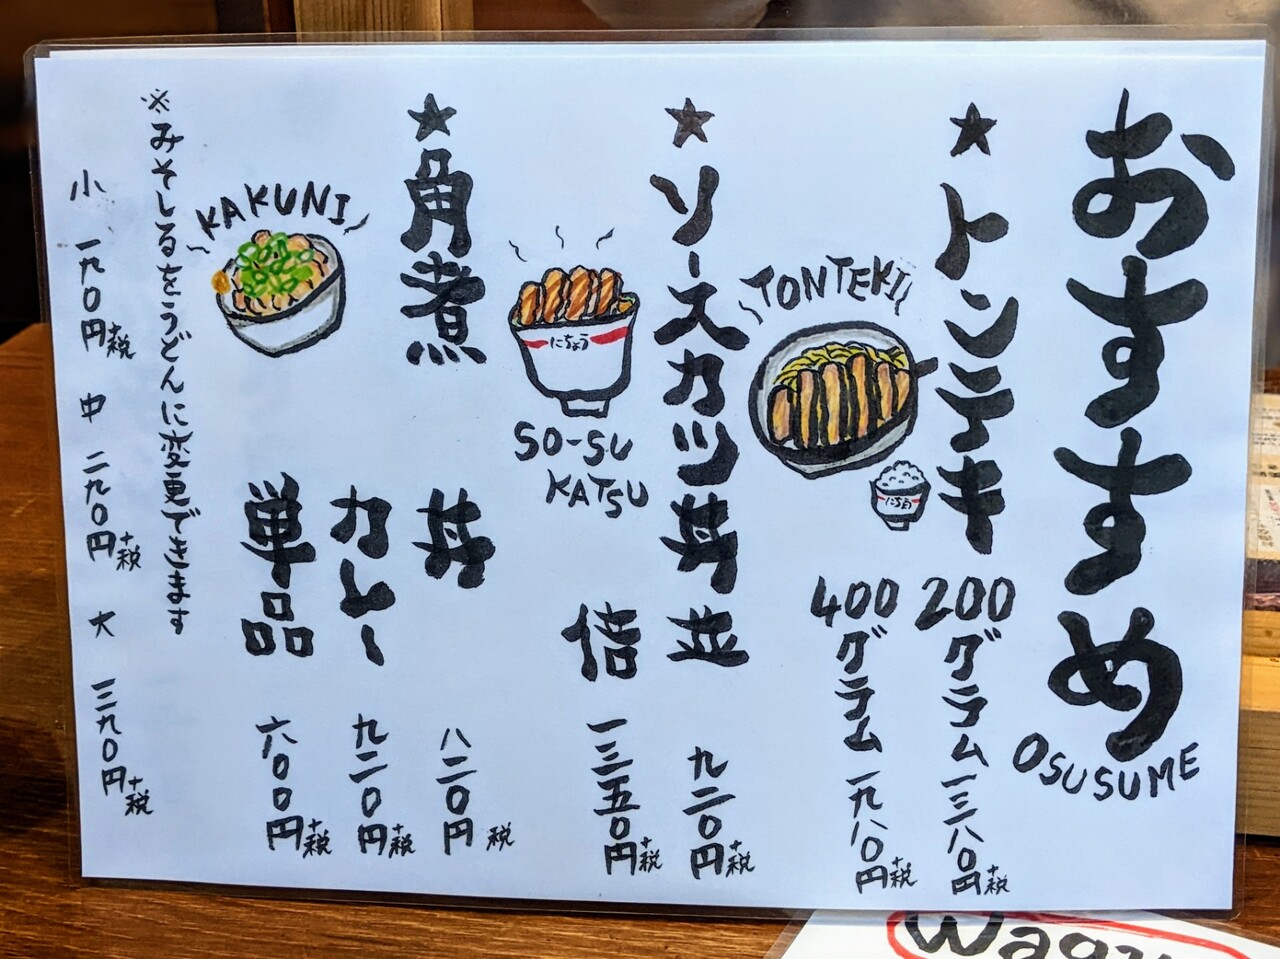 おすすめ
OSUSUME
★トンテキ
200グラム 一三八〇円+税
400グラム 一九八〇円+税
TONTEKI
にちょう
★ソースカツ丼 並 九二〇円+税
倍 一三五〇円+税
SO-SU
KATSU
にちょう
★角煮
丼 八二〇円 税
カレー 九二〇円+税
単品 六〇〇円+税
KAKUNI
※みそしるをうどんに変更できます
小 一九〇円+税 中 二九〇円+税 大 三九〇円+税